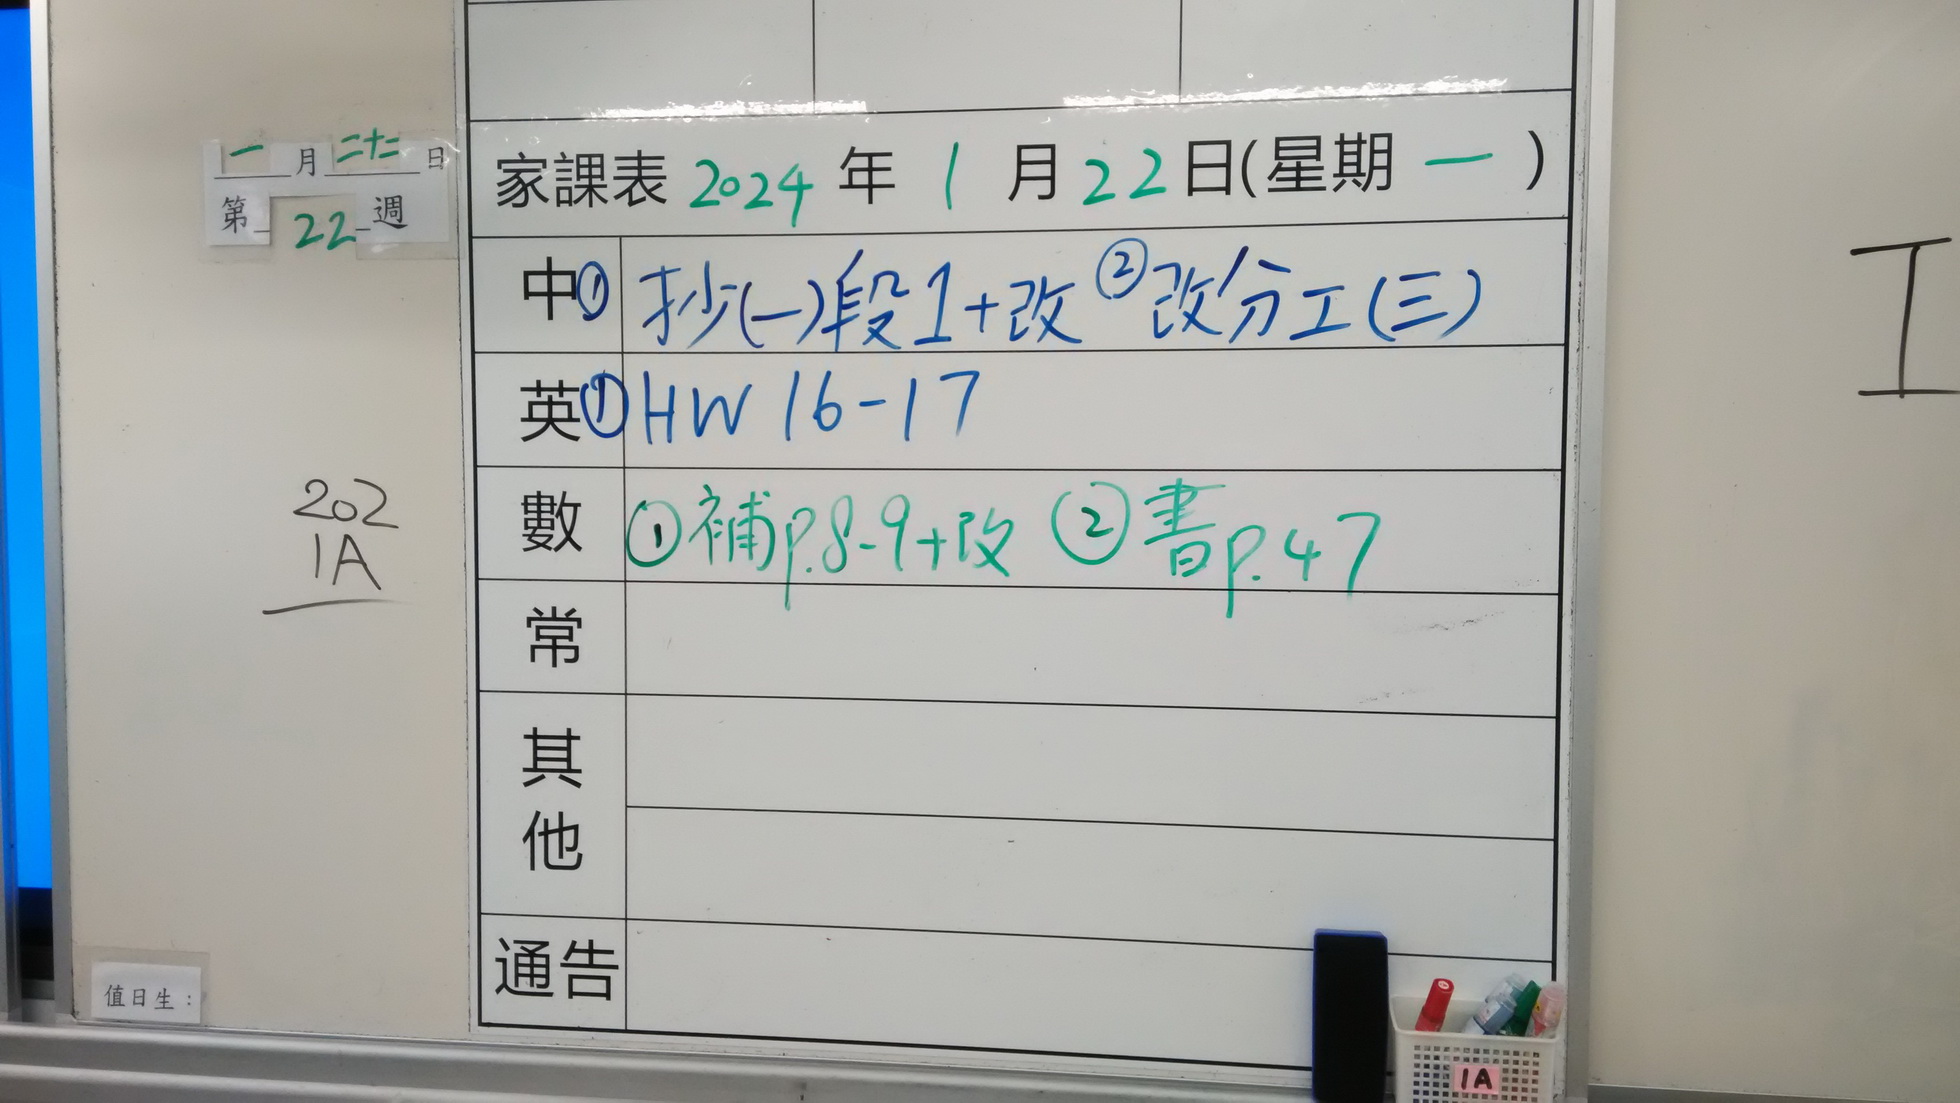 一月二十二日
第22週
家課表 2024 年 1 月 22 日(星期 一 )
中 ① 抄(一)段1+改 ② 改分工(三)
英 ① HW 16-17
數 ① 補p.8-9+改 ② 書p.47
常
其他
通告
202
1A
值日生:
1A
工